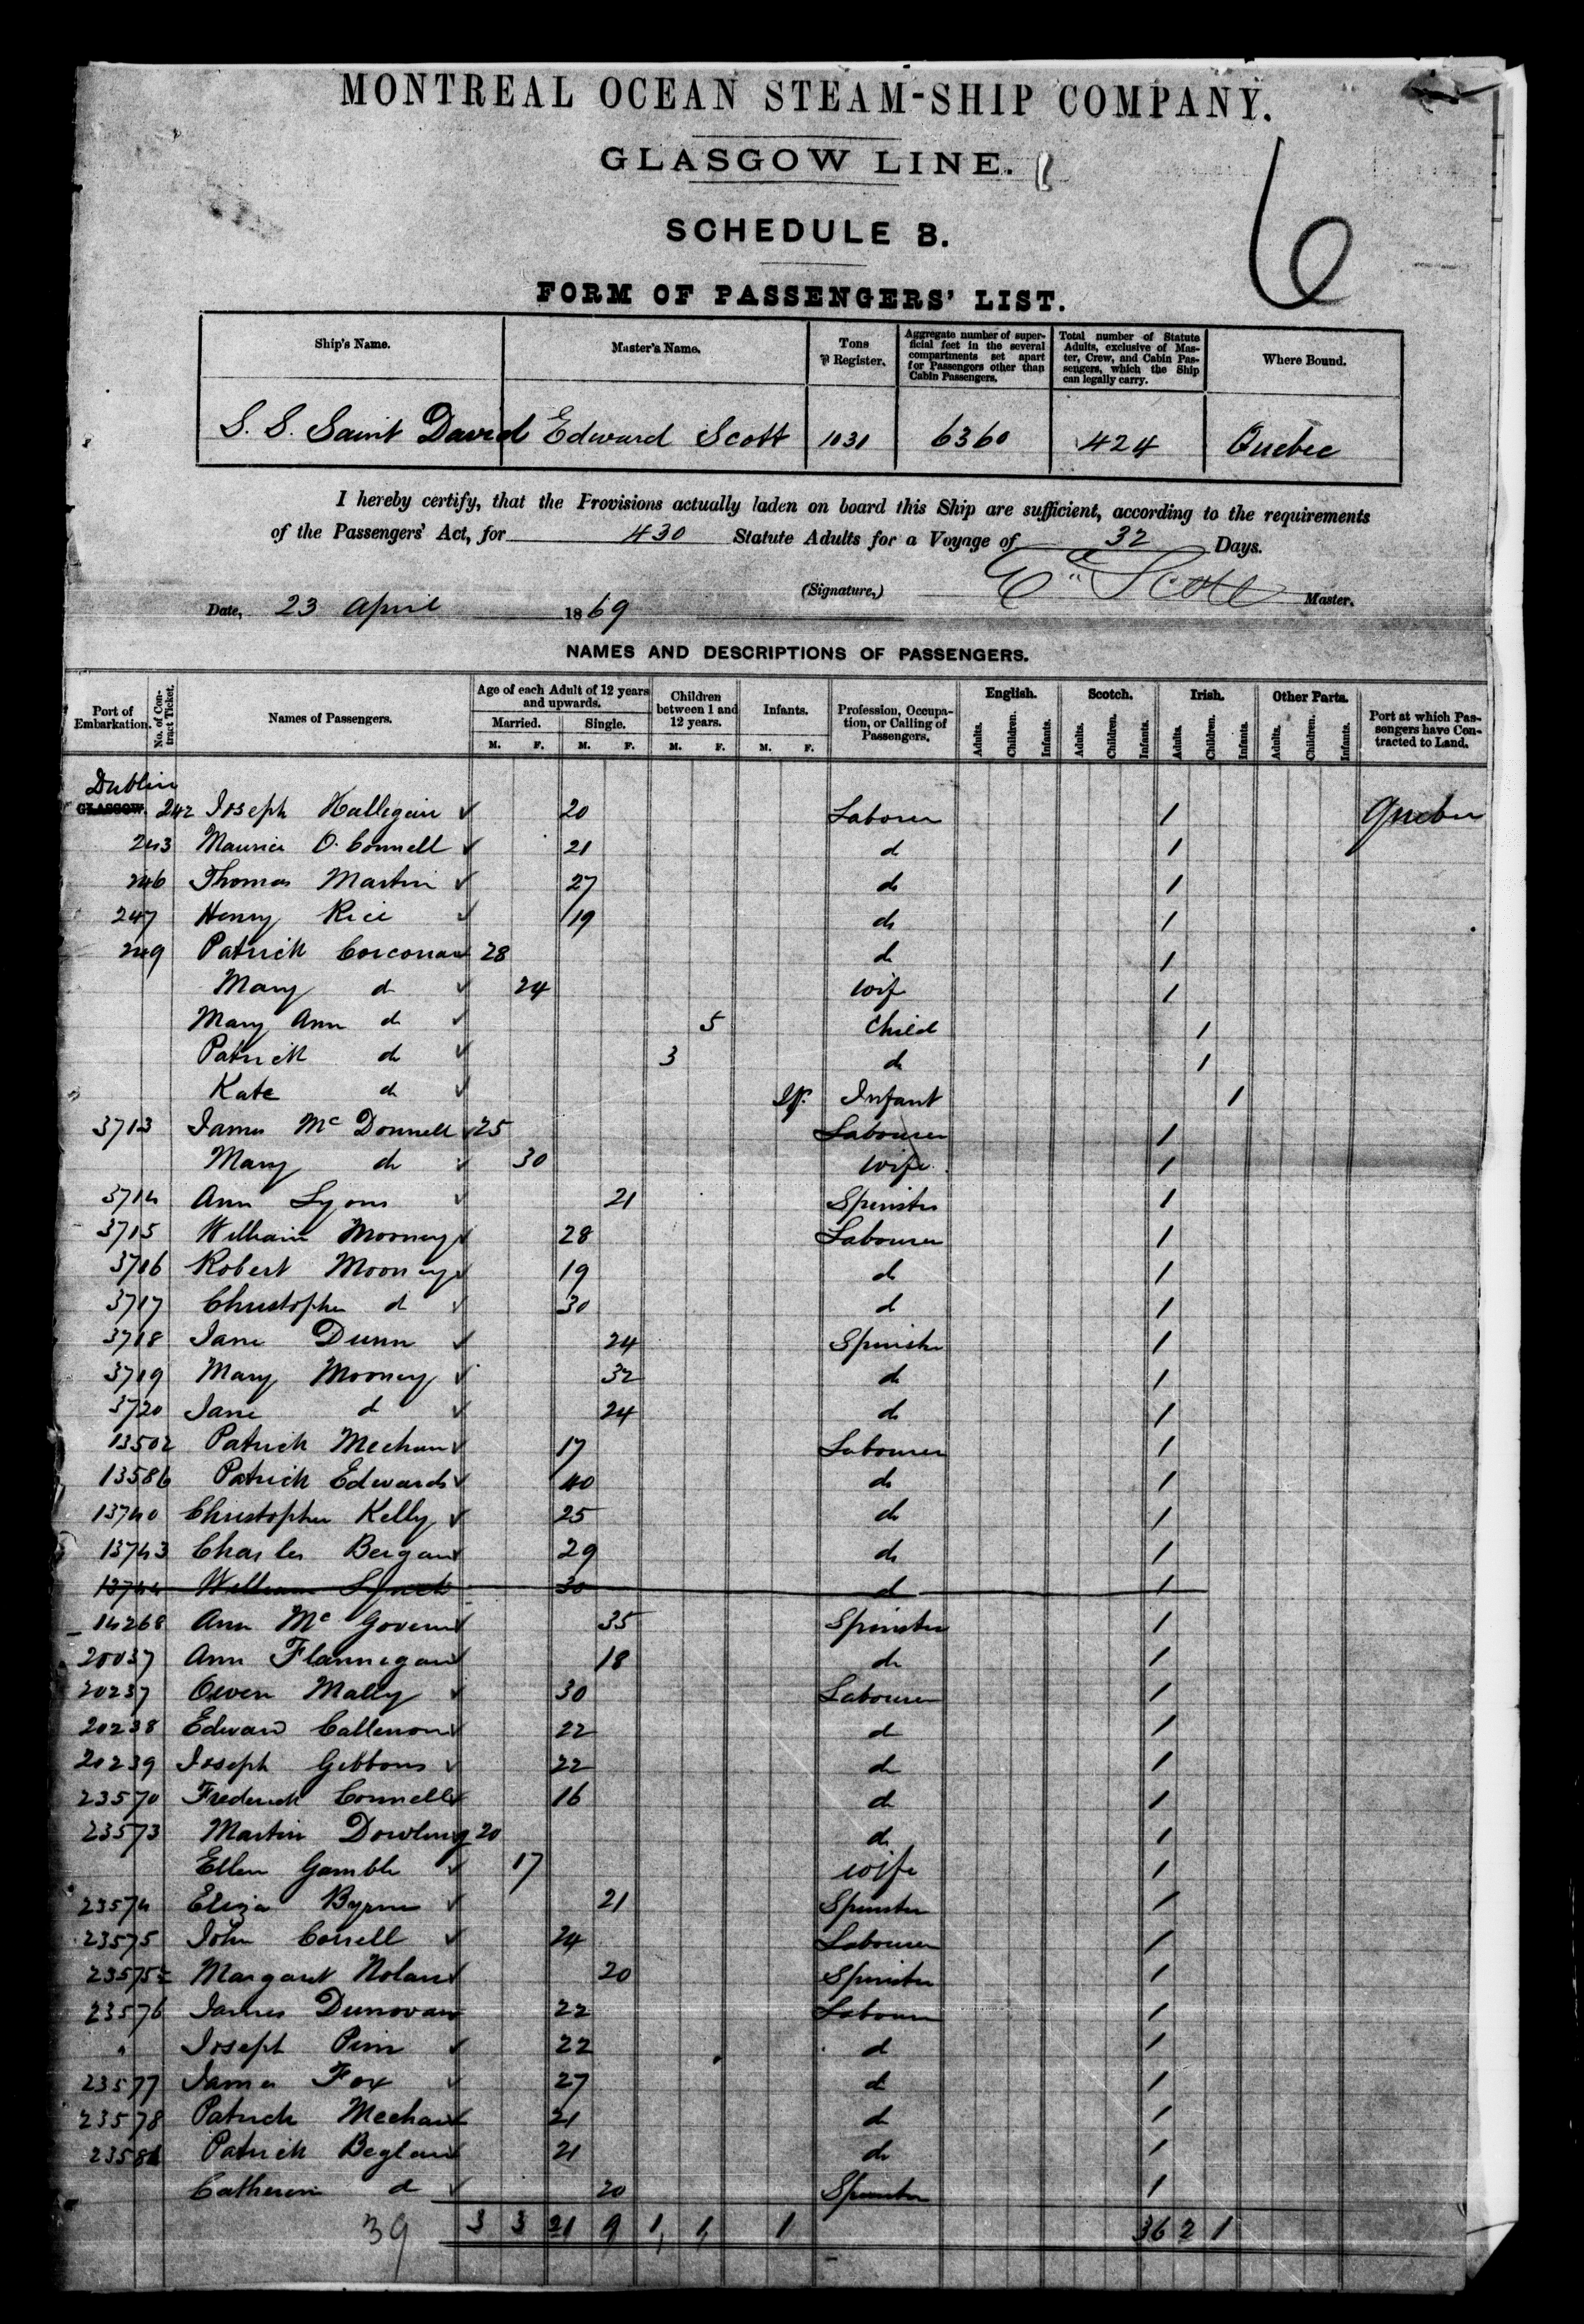 MONTREAL OCEAN STEAM-SHIP COMPANY.
GLASGOW LINE.
6
SCHEDULE B.
FORM OF PASSENGERS' LIST.
Ship's Name. Master's Name. Tons ⅌ Register. Aggregate number of superficial feet in the several compartments set apart for Passengers other than Cabin Passengers. Total number of Statute Adults, exclusive of Master, Crew, and Cabin Passengers, which the Ship can legally carry. Where Bound.
S. S. Saint David Edward Scott 1031 6360 424 Quebec
I hereby certify, that the Provisions actually laden on board this Ship are sufficient, according to the requirements
of the Passengers' Act, for 430 Statute Adults for a Voyage of 32 Days.
(Signature,) Ed Scott Master.
Date, 23 April 1869
NAMES AND DESCRIPTIONS OF PASSENGERS.
Port of Embarkation. No. of Contract Ticket. Names of Passengers. Age of each Adult of 12 years and upwards. Children between 1 and 12 years. Infants. Profession, Occupation, or Calling of Passengers. English. Scotch. Irish. Other Parts. Port at which Passengers have Contracted to Land.
Married. Single.
M. F. M. F. M. F. M. F. Adults. Children. Infants. Adults. Children. Infants. Adults. Children. Infants. Adults. Children. Infants.
Dublin
GLASGOW. 242 Joseph Hallegan ✓ 20 Laborer 1 Quebec
243 Maurice O'Connell ✓ 21 d 1
246 Thomas Martin ✓ 27 do 1
247 Henry Rice ✓ 19 do 1
249 Patrick Corcoran ✓ 28 do 1
Mary do ✓ 24 wife 1
Mary Ann do ✓ 5 Child 1
Patrick do ✓ 3 do 1
Kate do ✓ Inf. Infant 1
3713 James McDonnell ✓ 25 Labourer 1
Mary do ✓ 30 wife 1
3714 Ann Lyons ✓ 21 Spinster 1
3715 William Mooney ✓ 28 Labourer 1
3716 Robert Mooney ✓ 19 d 1
3717 Christopher d ✓ 30 d 1
3718 Jane Dunn ✓ 24 Spinster 1
3719 Mary Mooney ✓ 32 do 1
3720 Jane d ✓ 24 do 1
13502 Patrick Meehan ✓ 17 Labourer 1
13586 Patrick Edwards ✓ 40 do 1
13740 Christopher Kelly ✓ 25 do 1
13743 Charles Bergan ✓ 29 do 1
13744 William Lynch 30 d 1
14268 Ann McGovern ✓ 35 Spinster 1
20037 Ann Flannegan ✓ 18 do 1
20237 Owen Mally ✓ 30 Labourer 1
20238 Edward Callenon ✓ 22 d 1
20239 Joseph Gibbons ✓ 22 do 1
23570 Frederick Connell ✓ 16 d 1
23573 Martin Dowling 20 do 1
Ellen Gamble ✓ 17 wife 1
23574 Eliza Byrne ✓ 21 Spinster 1
23575 John Correll ✓ 24 Labourer 1
23575½ Margaret Nolan ✓ 20 Spinster 1
23576 James Dunovan 22 Labourer 1
" Joseph Pim ✓ 22 d 1
23577 James Fox ✓ 27 d 1
23578 Patrick Meehan ✓ 21 d 1
23581 Patrick Beglan ✓ 21 do 1
Catherine d ✓ 20 Spinster 1
39 3 3 21 9 1 1 1 36 2 1